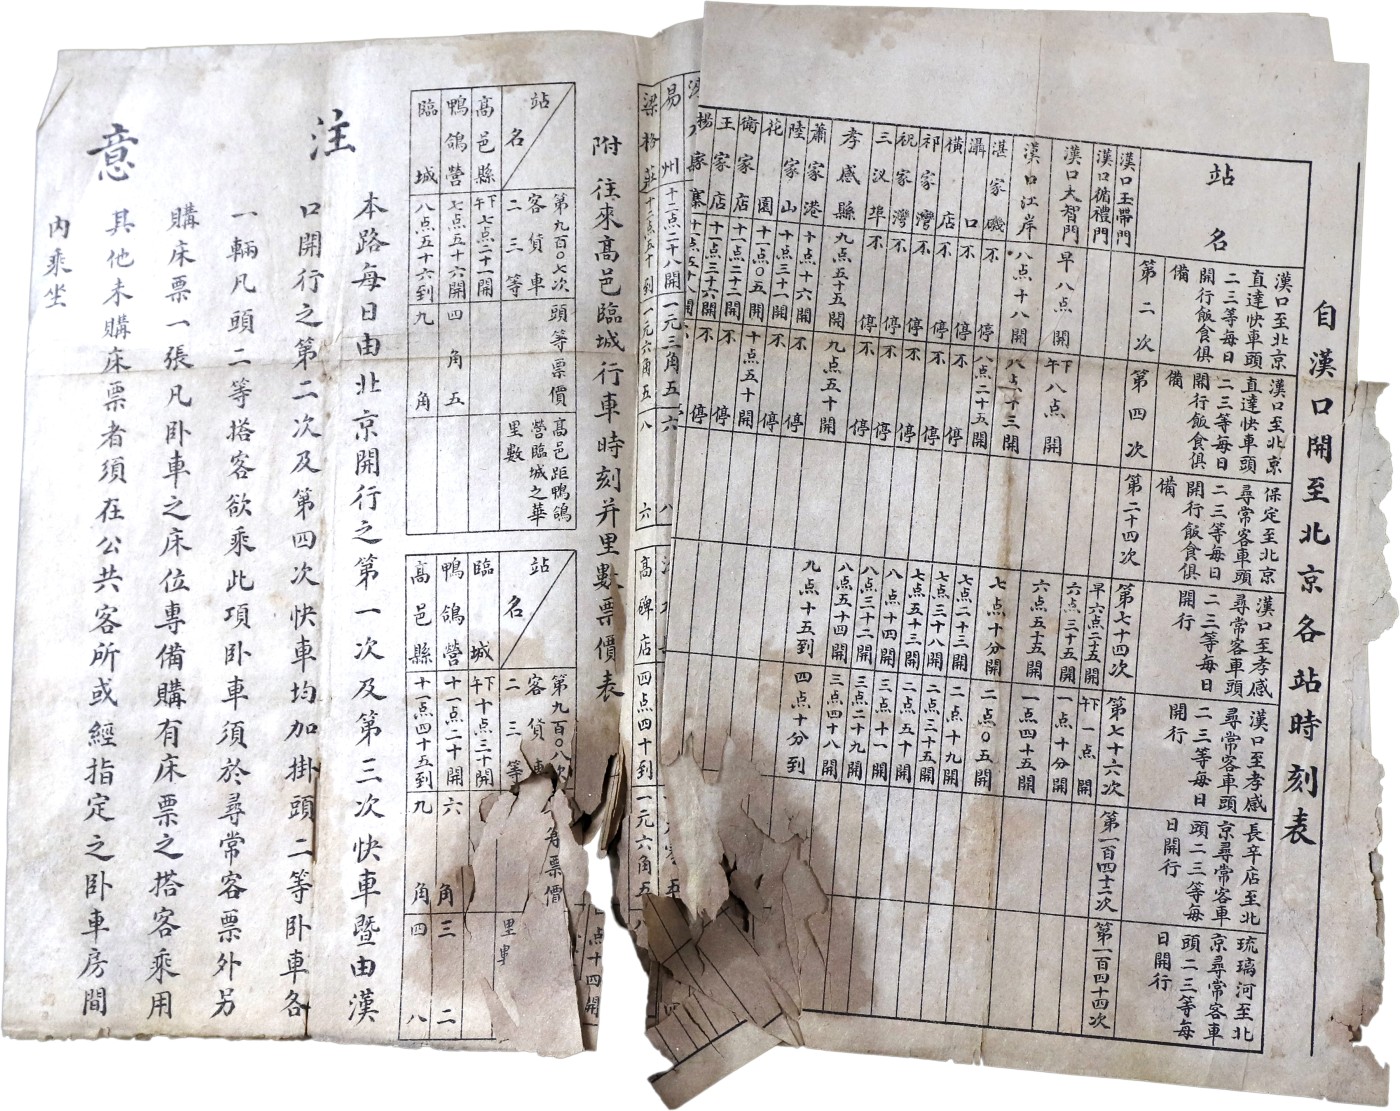 自漢口開至北京各站時刻表
站名
漢口至北京直達快車頭二三等每日開行飯食俱備
漢口至北京直達快車頭二三等每日開行飯食俱備
保定至北京尋常客車頭二三等每日開行飯食俱備
漢口至孝感尋常客車頭二三等每日開行
漢口至孝感尋常客車頭二三等每日開行
長辛店至北京尋常客車頭二三等每日開行
琉璃河至北京尋常客車頭二三等每日開行
第二次
第四次
第二十四次
第七十四次
第七十六次
第一百四十二次
第一百四十四次
漢口玉帶門 早六点二十五開 下午一点開
漢口循禮門 六点三十五開 一点十分開
漢口大智門 早八点開 下午八点開
漢口江岸 八点十八開 八点十三開 六点五十五開 一点四十五開
湛家磯 不停 八点二十五開 七点十分開 二点〇五開
灄口 不停 不停 七点二十三開 二点十九開
橫店 不停 不停 七点三十八開 二点三十五開
祁家灣 不停 不停 七点五十三開 二点五十開
祝家灣 不停 不停 八点十四開 三点十一開
三汊埠 不停 不停 八点三十二開 三点二十九開
孝感縣 九点五十五開 九点五十開 八点五十四開 三点四十八開
蕭家港 十点十六開 不停 九点十五到 四点十分到
陸家山 十点三十一開 不停
花園 十一点〇五開 十点五十開
衛家店 十一点二十二開 不停
王家店 十一点三十六開 不停
楊家寨 十一点五十八開
易州 十二点二十八開 一元三角五 六 八
梁格莊 十二点五十到 一元六角五 八 六
高碑店 四点四十到 一元六角五 八
点十四開
附往來高邑臨城行車時刻并里數票價表
站名 第九百〇七次客貨車二三等 頭等票價 高邑距鴨鴿營臨城之華里數
高邑縣 下午七点二十一開
鴨鴿營 七点五十六開 四角五
臨城 八点五十六到 九角
站名 第九百〇八次客貨車二三等 票價 里
臨城 下午十点三十開
鴨鴿營 十一点二十開 六角 三二
高邑縣 十一点四十五到 九角 四八
注意
本路每日由北京開行之第一次及第三次快車暨由漢
口開行之第二次及第四次快車均加掛頭二等卧車各
一輛凡頭二等搭客欲乘此項卧車須於尋常客票外另
購床票一張凡卧車之床位專備購有床票之搭客乘用
其他未購床票者須在公共客所或經指定之卧車房間
內乘坐